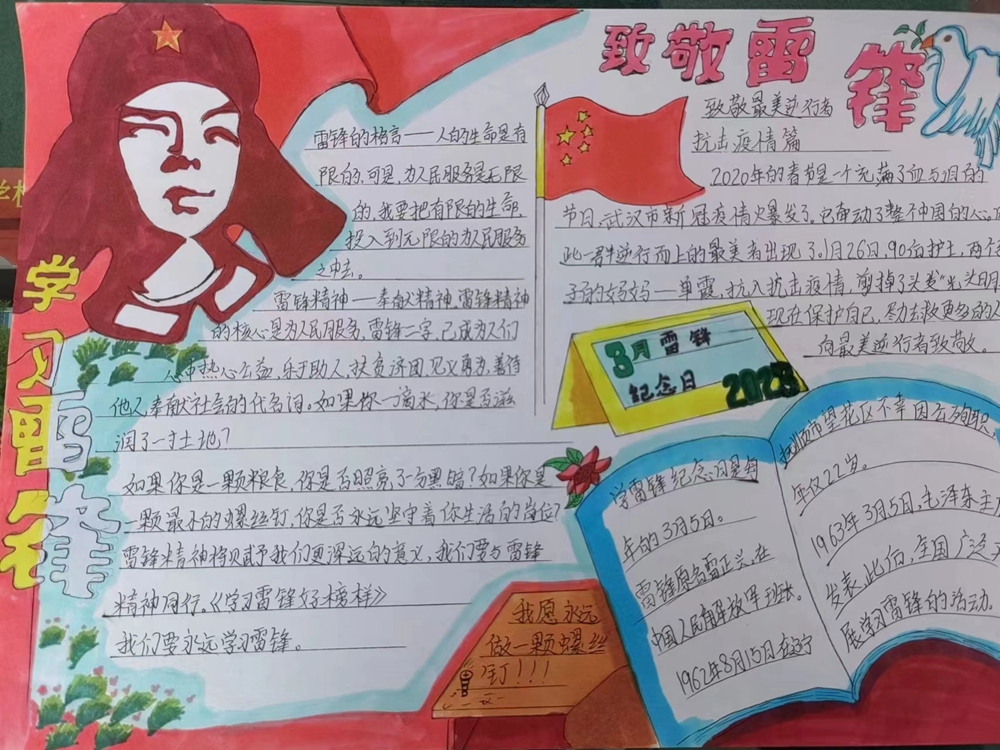 学习雷锋
致敬雷锋
雷锋的格言——人的生命是有
限的,可是,为人民服务是无限
的,我要把有限的生命,
投入到无限的为人民服务
之中去。
雷锋精神——奉献精神,雷锋精神
的核心是为人民服务,雷锋二字,已成为人们
热心公益,乐于助人,扶贫济困,见义勇为,善待
他人,奉献社会的代名词。如果你一滴水,你是否滋
润了一寸土地?
如果你是一颗粮食,你是否照亮了分黑暗?如果你是
一颗最小的螺丝钉,你是否永远坚守着你生活的岗位?
雷锋精神将赋予我们更深远的意义,我们要与雷锋
精神同行。《学习雷锋好榜样》
我们要永远学习雷锋。
致敬最美逆行者
抗击疫情篇
2020年的春节是一个充满了血与泪的
节日,武汉市新冠疫情火爆发了,也带动了整个中国的人心,
此一群逆行而上的最美者出现了。1月26日,90后护士,两个
子的妈妈——单霞,抗入抗击疫情,剪掉了头发"光头
现在保护自己,尽力去救更多的人
向最美逆行者致敬。
3月雷锋
纪念日
2023
学雷锋纪念日是每
年的3月5日。
雷锋原名雷正兴,在
中国人民解放军班长。
1962年8月15日在辽宁
抚顺市望花区不幸因公殉职
年仅22岁。
1963年3月5日,毛泽东主
发表,此后,全国广泛开
展学习雷锋的活动。
我愿永远
做一颗螺丝
钉!!!